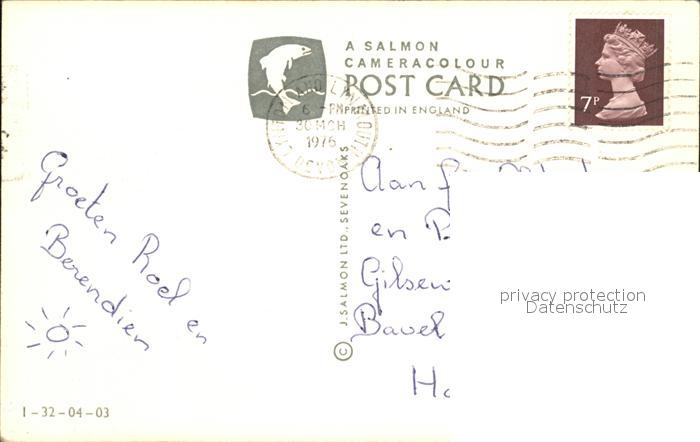 A SALMON
CAMERACOLOUR
POST CARD
PRINTED IN ENGLAND
7P
6 - PM
30 MCH
1976
© J. SALMON LTD., SEVENOAKS
Groeten Roel en
Berendien
Aan
en
Bavel
privacy protection
Datenschutz
1-32-04-03